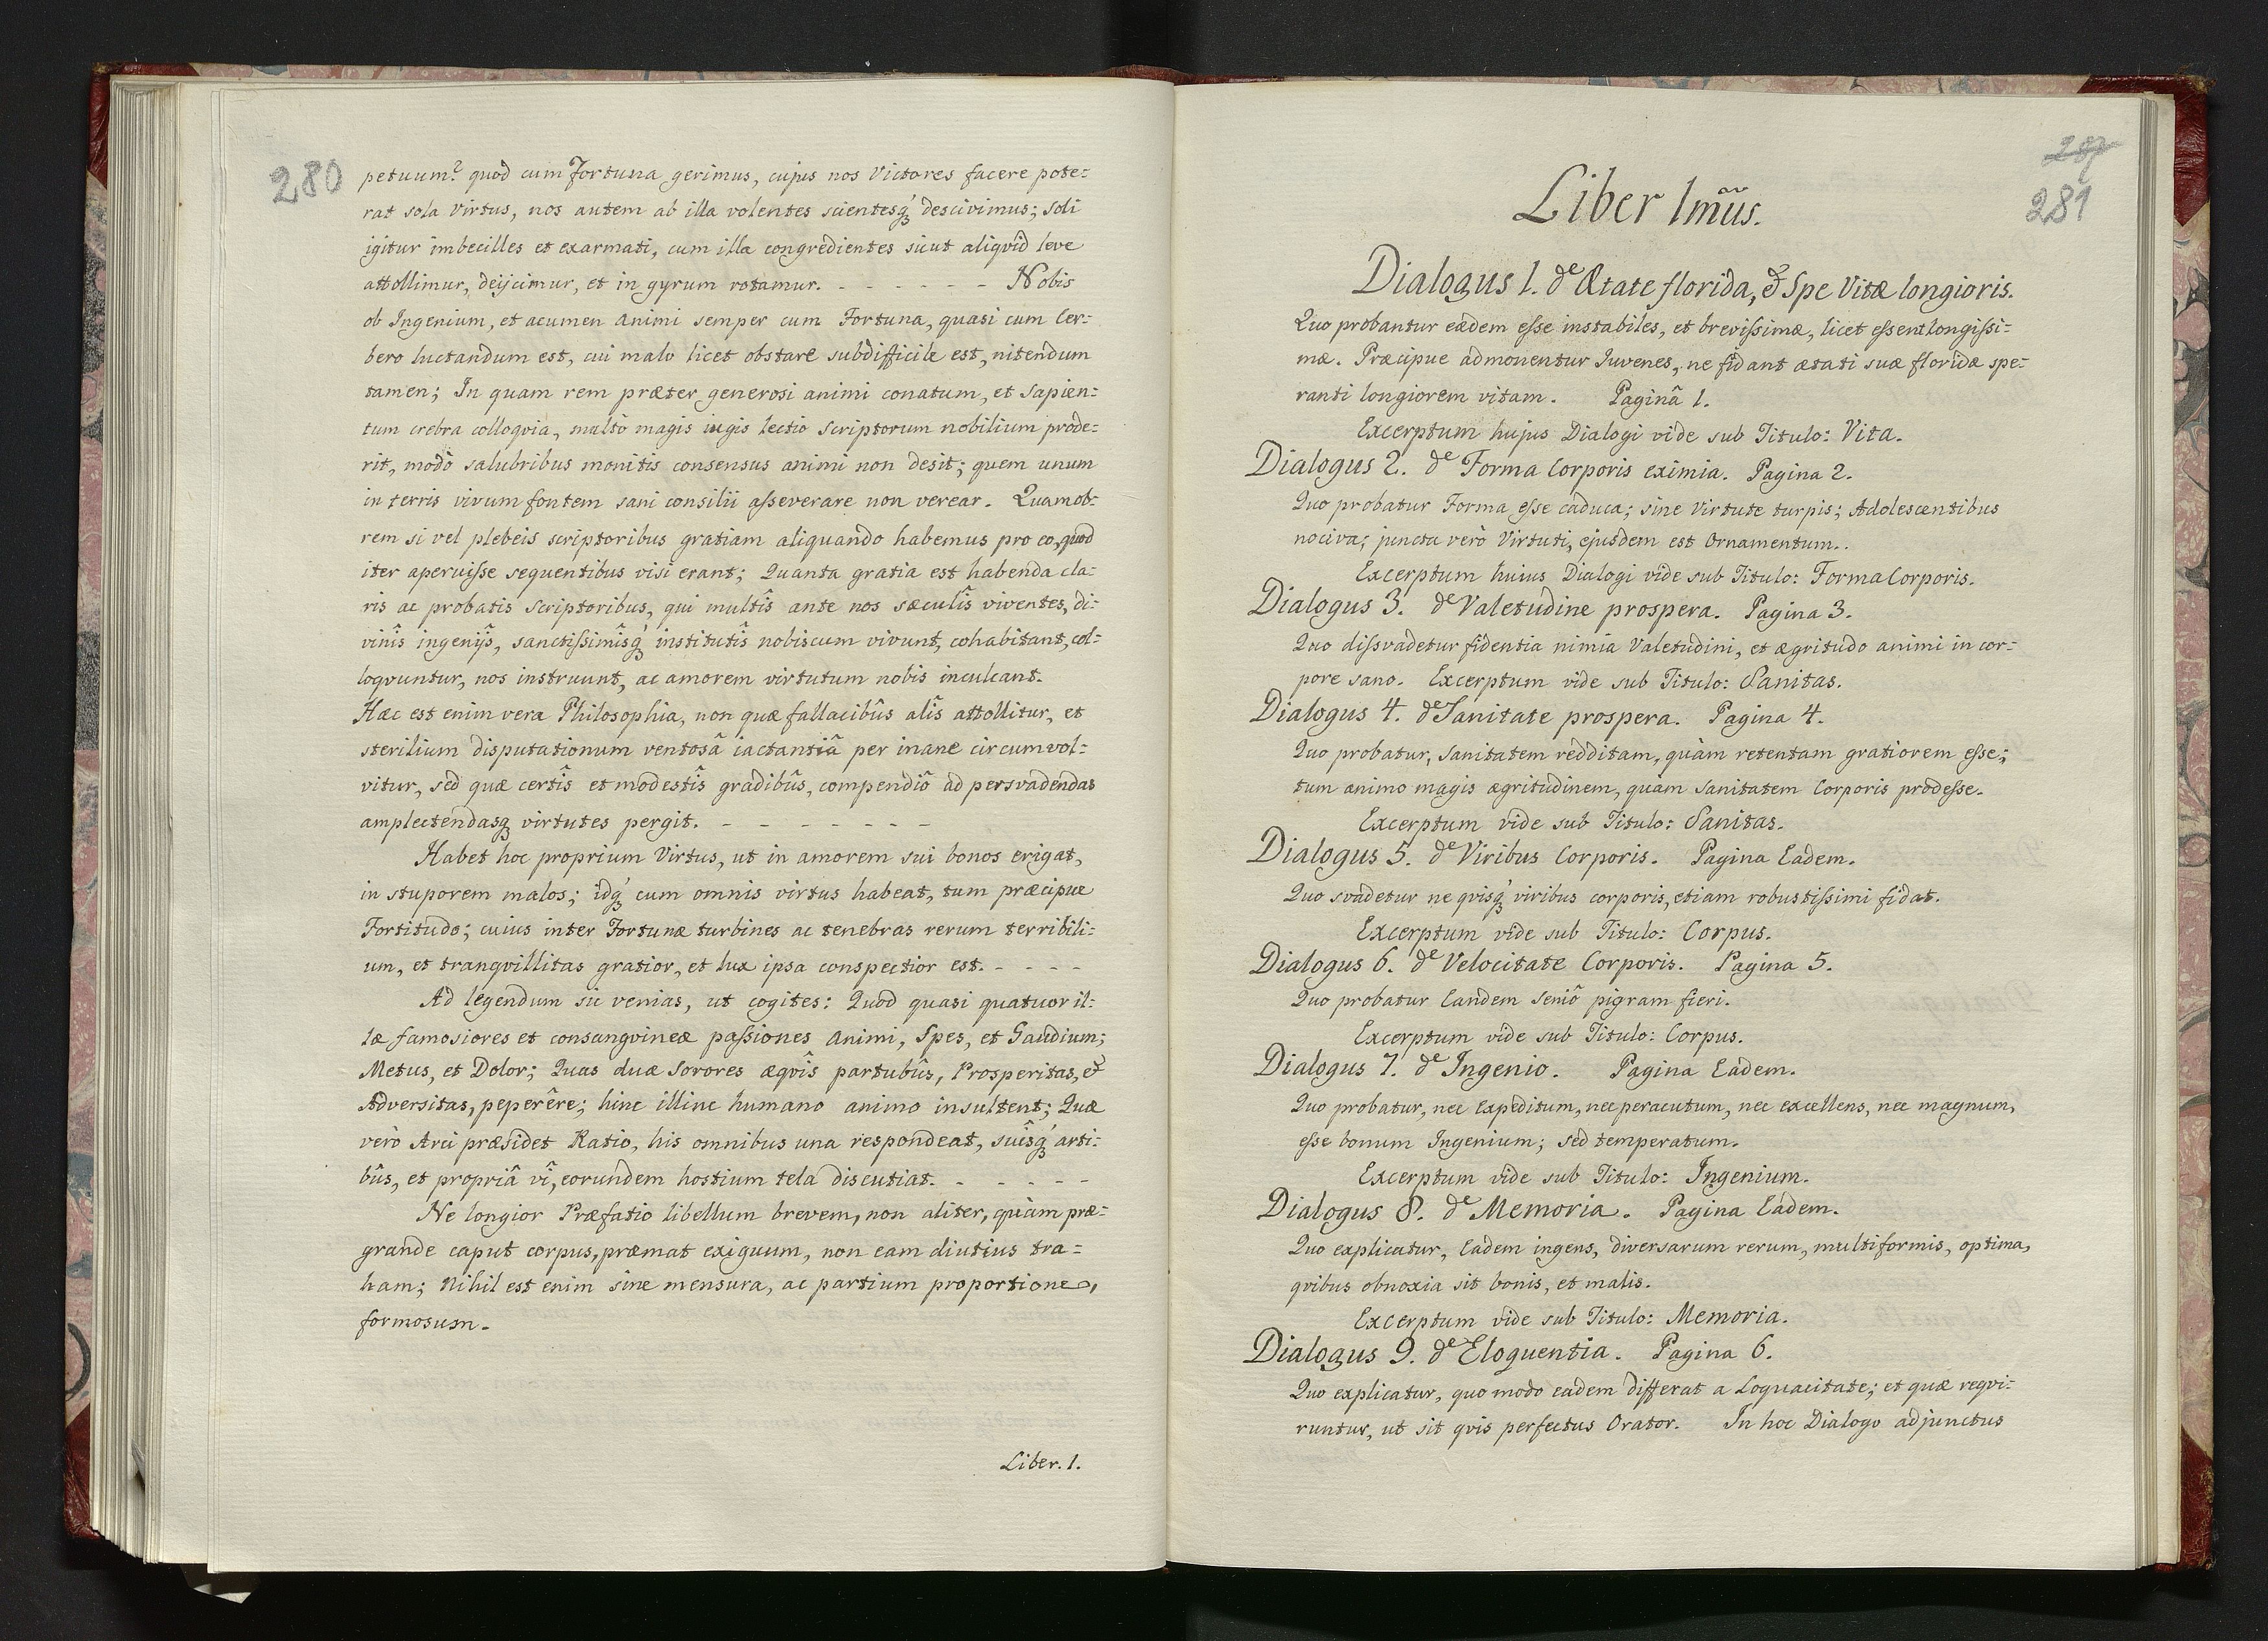 280
petuum? quod cum Fortuna gerimus, cujus nos Victores facere pote:
rat sola Virtus, nos autem ab illa volentes scientesq́ descivimus; soli
igitur imbecilles et exarmati, cum illa congredientes sicut aliqvid leve
attollimur, deijcimur, et in gyrum rotamur. - - - - - - Nobis
ob Ingenium, et acumen Animi semper cum Fortuna, quasi cum Cer:
bero luctandum est, cui malo licet obstare subdifficile est, nitendum
tamen; In quam rem præter generosi animi conatum, et Sapien:
tum crebra colloqvia, multò magis iugis lectio Scriptorum nobilium prode:
rit, modò salubribus monitis consensus animi non desit; quem unum
in terris vivum fontem sani consilii aſseverare non verear. Quamob:
rem si vel plebeis scriptoribus gratiam aliquando habemus pro eo, quod
iter aperuiſse sequentibus visi erant; Quanta gratia est habenda cla:
ris ac probatis Scriptoribus, qui multîs ante nos sæculîs viventes, di:
vinîs ingenijs, sanctiſsimîsq́ institutîs nobiscum vivunt, cohabitant, col:
loqvuntur, nos instruunt, ac amorem virtutum nobis inculcant.
Hæc est enim vera Philosophia, non quæ fallacibûs alîs attollitur, et
sterilium disputationum ventosâ iactantiâ per inane circumvol:
vitur, sed quæ certîs et modestîs gradibûs, compendiô ad persvadendas
amplectendasq́ virtutes pergit. - - - - - - -
Habet hoc proprium Virtus, ut in amorem sui bonos erigat,
in stuporem malos; idq́ cum omnis virtus habeat, tum præcipue
Fortitudo; cuius inter Fortunæ turbines ac tenebras rerum terribili:
um, et tranqvillitas gratior, et lux ipsa conspectior est. - - - -
Ad legendum sic venias, ut cogites: Quod quasi quatuor il:
læ famosiores et consangvineæ paſsiones Animi, Spes, et Gaudium;
Metus, et Dolor; Quas duæ Sorores æqvîs partubûs, Prosperitas, &
Adversitas, peperêre; hinc illinc humano animo insultent; Quæ
verò Arci præsidet Ratio, his omnibus una respondeat, suîsq́ arti:
bûs, et propriâ vî, eorundem hostium tela discutiat. - - - - -
Ne longior Præfatio libellum brevem, non aliter, quàm præ:
grande caput corpus, præmat exiguum, non eam diutius tra:
ham; Nihil est enim sine mensura, ac partium proportione,
formosum.
Liber. 1.
281
Liber 1mũs.
Dialogus 1. de Ætate florida, & Spe Vitæ longioris.
Quo probantur eædem eſse instabiles, et breviſsimæ, licet eſsent longiſsi:
mæ. Præcipue admonentur Iuvenes, ne fidant ætati suæ floridæ spe:
ranti longiorem vitam. Paginâ 1.
Excerptum hujus Dialogi vide sub Titulo: Vita.
Dialogus 2. de Forma Corporis eximia. Pagina 2.
Quo probatur Forma eſse caduca; sine Virtute turpis; Adolescentibus
nociva; juncta verò Virtuti, ejusdem est Ornamentum..
Excerptum huius Dialogi vide sub Titulo: Forma Corporis.
Dialogus 3. de Valetudine prospera. Pagina 3.
Quo diſsvadetur fidentia nimia Valetudini, et ægritudo animi in cor:
pore sano. Excerptum vide sub Titulo: Sanitas.
Dialogus 4. de Sanitate prospera. Pagina 4.
Quo probatur, Sanitatem redditam, quàm retentam gratiorem eſse;
tum animo magis ægritudinem, quàm Sanitatem Corporis prodeſse.
Excerptum vide sub Titulo: Sanitas.
Dialogus 5. de Viribus Corporis. Pagina Eadem.
Quo svadetur ne qvisq́ viribus corporis, etiam robustiſsimi fidat.
Excerptum vide sub Titulo: Corpus.
Dialogus 6. de Velocitate Corporis. Pagina 5.
Quo probatur Eandem Seniô pigram fieri.
Excerptum vide sub Titulo: Corpus.
Dialogus 7. de Ingenio. Pagina Eadem.
Quo probatur, nec Expeditum, nec peracutum, nec excellens, nec magnum,
eſse bonum Ingenium; sed temperatum.
Excerptum vide sub Titulo: Ingenium.
Dialogus 8. de Memoria. Pagina Eadem.
Quo explicatur, Eadem ingens, diversarum rerum, multiformis, optima,
qvibus obnoxia sit bonis, et malis.
Excerptum vide sub Titulo: Memoria.
Dialogus 9. de Eloquentia. Pagina 6.
Quo explicatur, quo modo eadem differat a Loquacitate; et quæ reqvi:
runtur, ut sit qvis perfectus Orator. In hoc Dialogo adjunctus